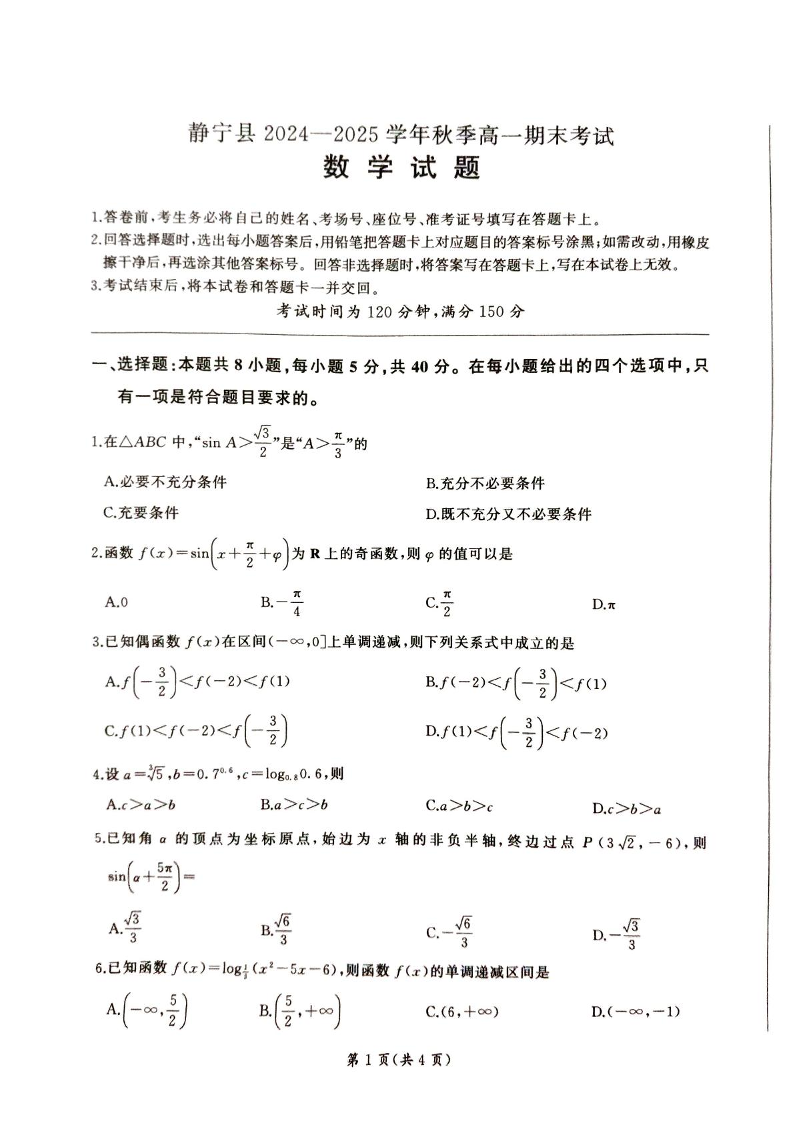 静宁县 2024—2025 学年秋季高一期末考试
数 学 试 题
1.答卷前,考生务必将自己的姓名、考场号、座位号、准考证号填写在答题卡上。
2.回答选择题时,选出每小题答案后,用铅笔把答题卡上对应题目的答案标号涂黑;如需改动,用橡皮
擦干净后,再选涂其他答案标号。回答非选择题时,将答案写在答题卡上,写在本试卷上无效。
3.考试结束后,将本试卷和答题卡一并交回。
考试时间为 120 分钟,满分 150 分
一、选择题:本题共 8 小题,每小题 5 分,共 40 分。在每小题给出的四个选项中,只
有一项是符合题目要求的。
1.在△ABC 中,“sin A>√3/2”是“A>π/3”的
A.必要不充分条件 B.充分不必要条件
C.充要条件 D.既不充分又不必要条件
2.函数 f(x)=sin(x+π/2+φ)为 R 上的奇函数,则 φ 的值可以是
A.0 B.-π/4 C.π/2 D.π
3.已知偶函数 f(x)在区间(-∞,0]上单调递减,则下列关系式中成立的是
A.f(-3/2)<f(-2)<f(1) B.f(-2)<f(-3/2)<f(1)
C.f(1)<f(-2)<f(-3/2) D.f(1)<f(-3/2)<f(-2)
4.设 a=∛5,b=0.7^0.6,c=log₀.₈0.6,则
A.c>a>b B.a>c>b C.a>b>c D.c>b>a
5.已知角 α 的顶点为坐标原点,始边为 x 轴的非负半轴,终边过点 P(3√2,-6),则
sin(α+5π/2)=
A.√3/3 B.√6/3 C.-√6/3 D.-√3/3
6.已知函数 f(x)=log_{1/2}(x²-5x-6),则函数 f(x)的单调递减区间是
A.(-∞,5/2) B.(5/2,+∞) C.(6,+∞) D.(-∞,-1)
第 1 页(共 4 页)